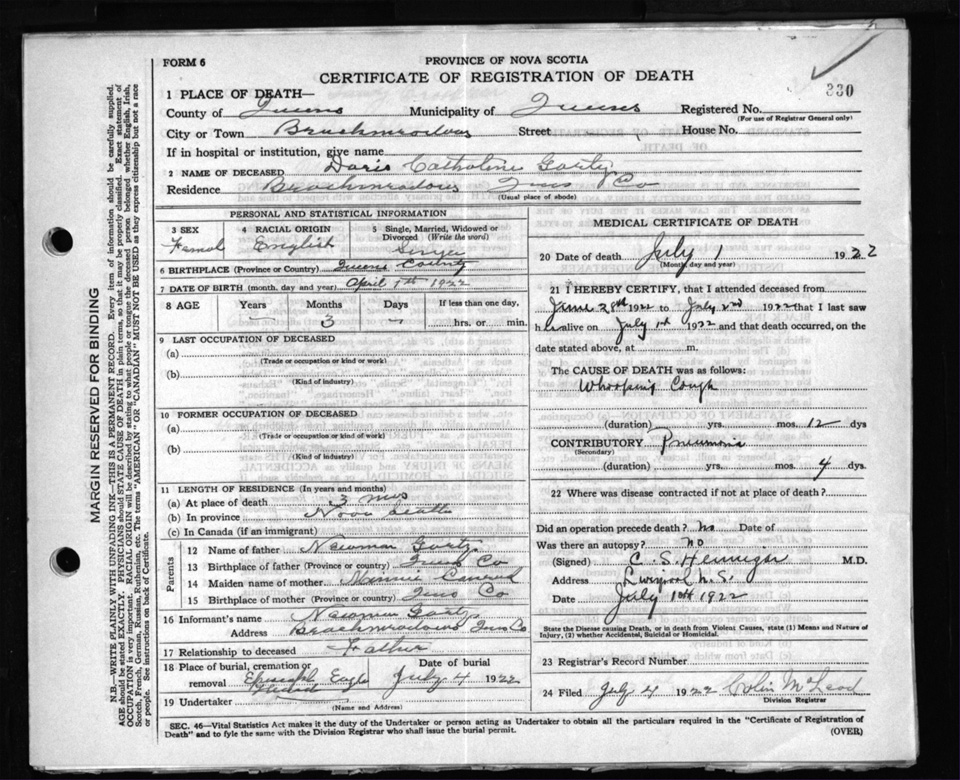 FORM 6
PROVINCE OF NOVA SCOTIA
CERTIFICATE OF REGISTRATION OF DEATH
330
1 PLACE OF DEATH—
County of Queens Municipality of Queens Registered No.
(For use of Registrar General only)
City or Town Street House No.
If in hospital or institution, give name
2 NAME OF DECEASED Doris Catholine
Residence Co
(Usual place of abode)
PERSONAL AND STATISTICAL INFORMATION
3 SEX 4 RACIAL ORIGIN 5 Single, Married, Widowed or Divorced (Write the word)
Femal English Single
6 BIRTHPLACE (Province or Country) Queens County
7 DATE OF BIRTH (month, day and year) April 1st 1922
8 AGE Years Months Days If less than one day,
— 3 — hrs. or min.
9 LAST OCCUPATION OF DECEASED
(a)
(Trade or occupation or kind or work)
(b)
(Kind of industry)
10 FORMER OCCUPATION OF DECEASED
(a)
(Trade or occupation or kind of work)
(b)
(Kind of industry)
11 LENGTH OF RESIDENCE (In years and months)
(a) At place of death 3 mos
(b) In province Nova
(c) In Canada (if an immigrant)
Parents
12 Name of father Newman
13 Birthplace of father (Province or country) Co
14 Maiden name of mother Minnie
15 Birthplace of mother (Province or country) Co
16 Informant's name Newman
Address Co
17 Relationship to deceased Father
18 Place of burial, cremation or removal Date of burial
July 4 1922
19 Undertaker
(Name and Address)
MEDICAL CERTIFICATE OF DEATH
20 Date of death July 1 1922
(Month, day and year)
21 I HEREBY CERTIFY, that I attended deceased from
June 28th 1922 to July 2nd 1922 that I last saw
h alive on July 1st 1922 and that death occurred, on the
date stated above, at m.
The CAUSE OF DEATH was as follows:
Whooping Cough
(duration) yrs. mos. 12 dys
CONTRIBUTORY Pneumonia
(Secondary)
(duration) yrs. mos. 4 dys.
22 Where was disease contracted if not at place of death?
Did an operation precede death? no Date of
Was there an autopsy? no
(Signed) C. S. Hennigar M.D.
Address Liverpool N.S.
Date July 1922
State the Disease causing Death, or in death from Violent Causes, state (1) Means and Nature of Injury, (2) whether Accidental, Suicidal or Homicidal.
23 Registrar's Record Number
24 Filed July 4 1922 Colin McLeod
Division Registrar
SEC. 46—Vital Statistics Act makes it the duty of the Undertaker or person acting as Undertaker to obtain all the particulars required in the "Certificate of Registration of
Death" and to fyle the same with the Division Registrar who shall issue the burial permit.
(OVER)
MARGIN RESERVED FOR BINDING
N.B.—WRITE PLAINLY WITH UNFADING INK—THIS IS A PERMANENT RECORD. Every item of information should be carefully supplied.
AGE should be stated EXACTLY. PHYSICIANS should STATE CAUSE OF DEATH in plain terms, so that it may be properly classified. Exact statement of
OCCUPATION is very important. RACIAL ORIGIN will be described by stating to what people or tongue the deceased person belonged, whether English, Irish,
Scotch, French, German, Russian, Ruthenian, etc. The terms "AMERICAN" or "CANADIAN" MUST NOT BE USED as they express citizenship but not a race
or people. See instructions on back of Certificate.